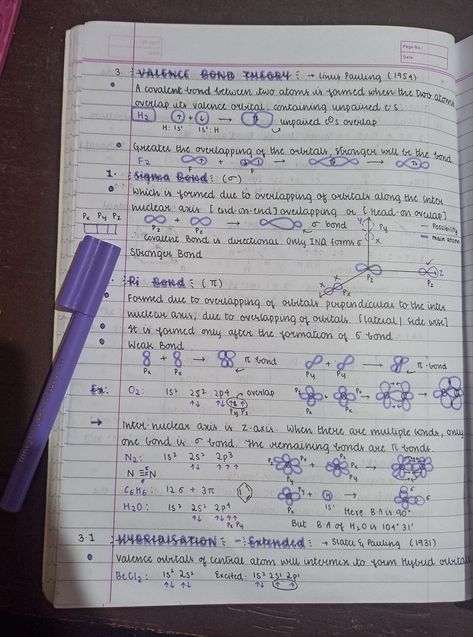 Page No.
Date
3. VALENCE BOND THEORY : → Linus Pauling (1954)
A covalent bond between two atoms is formed when the two atoms
overlap its valence orbital, containing unpaired e⁻s.
H₂ unpaired e⁻s overlap
H: 1s¹ 1s¹: H
Greater the overlapping of the orbitals, stronger will be the bond
F₂
F F
1. Sigma Bond : (σ)
Which is formed due to overlapping of orbitals along the inter
nuclear axis [end-on-end] overlapping or [Head-on overlap]
Px Py Pz
+ → σ bond
Pz Pz
Y Py
Possibility
main atome
Covalent Bond is directional. Only IND forms σ
Stronger Bond
X Px Pz Z
Pi Bond : (π)
Formed due to overlapping of orbitals perpendicular to the inter
nuclear axis, due to overlapping of orbitals [lateral / side wise]
It is formed only after the formation of σ bond.
Weak Bond
+ → π bond + → π-bond
Px Px Py Py
Ex: O₂: 1s² 2s² 2p⁴ overlap
↑↓ ↑↓ ↑ ↑
Py Pz
→ Inter-nuclear axis is z-axis. When there are multiple bonds, only
one bond is σ bond. The remaining bonds are π bonds.
N₂: 1s² 2s² 2p³
↑↓ ↑ ↑ ↑
N ≡ N
C₆H₆: 12σ + 3π
H₂O: 1s² 2s² 2p⁴
↑↓ ↑↓ ↑ ↑
Px Py
H
1s¹
Here B·A is 90°
But B·A of H₂O is 104°31'
3.1 HYBRIDISATION - Extended : → Slater & Pauling (1931)
Valence orbitals of central atom will intermix to form Hybrid orbitals
BeCl₂: 1s² 2s² Excited: 1s² 2s¹ 2p¹
↑↓ ↑↓ ↑↓ ↑ ↑